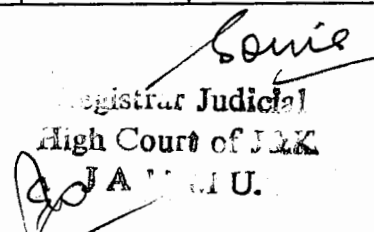 Registrar Judicial
High Court of J&K
JAMMU.